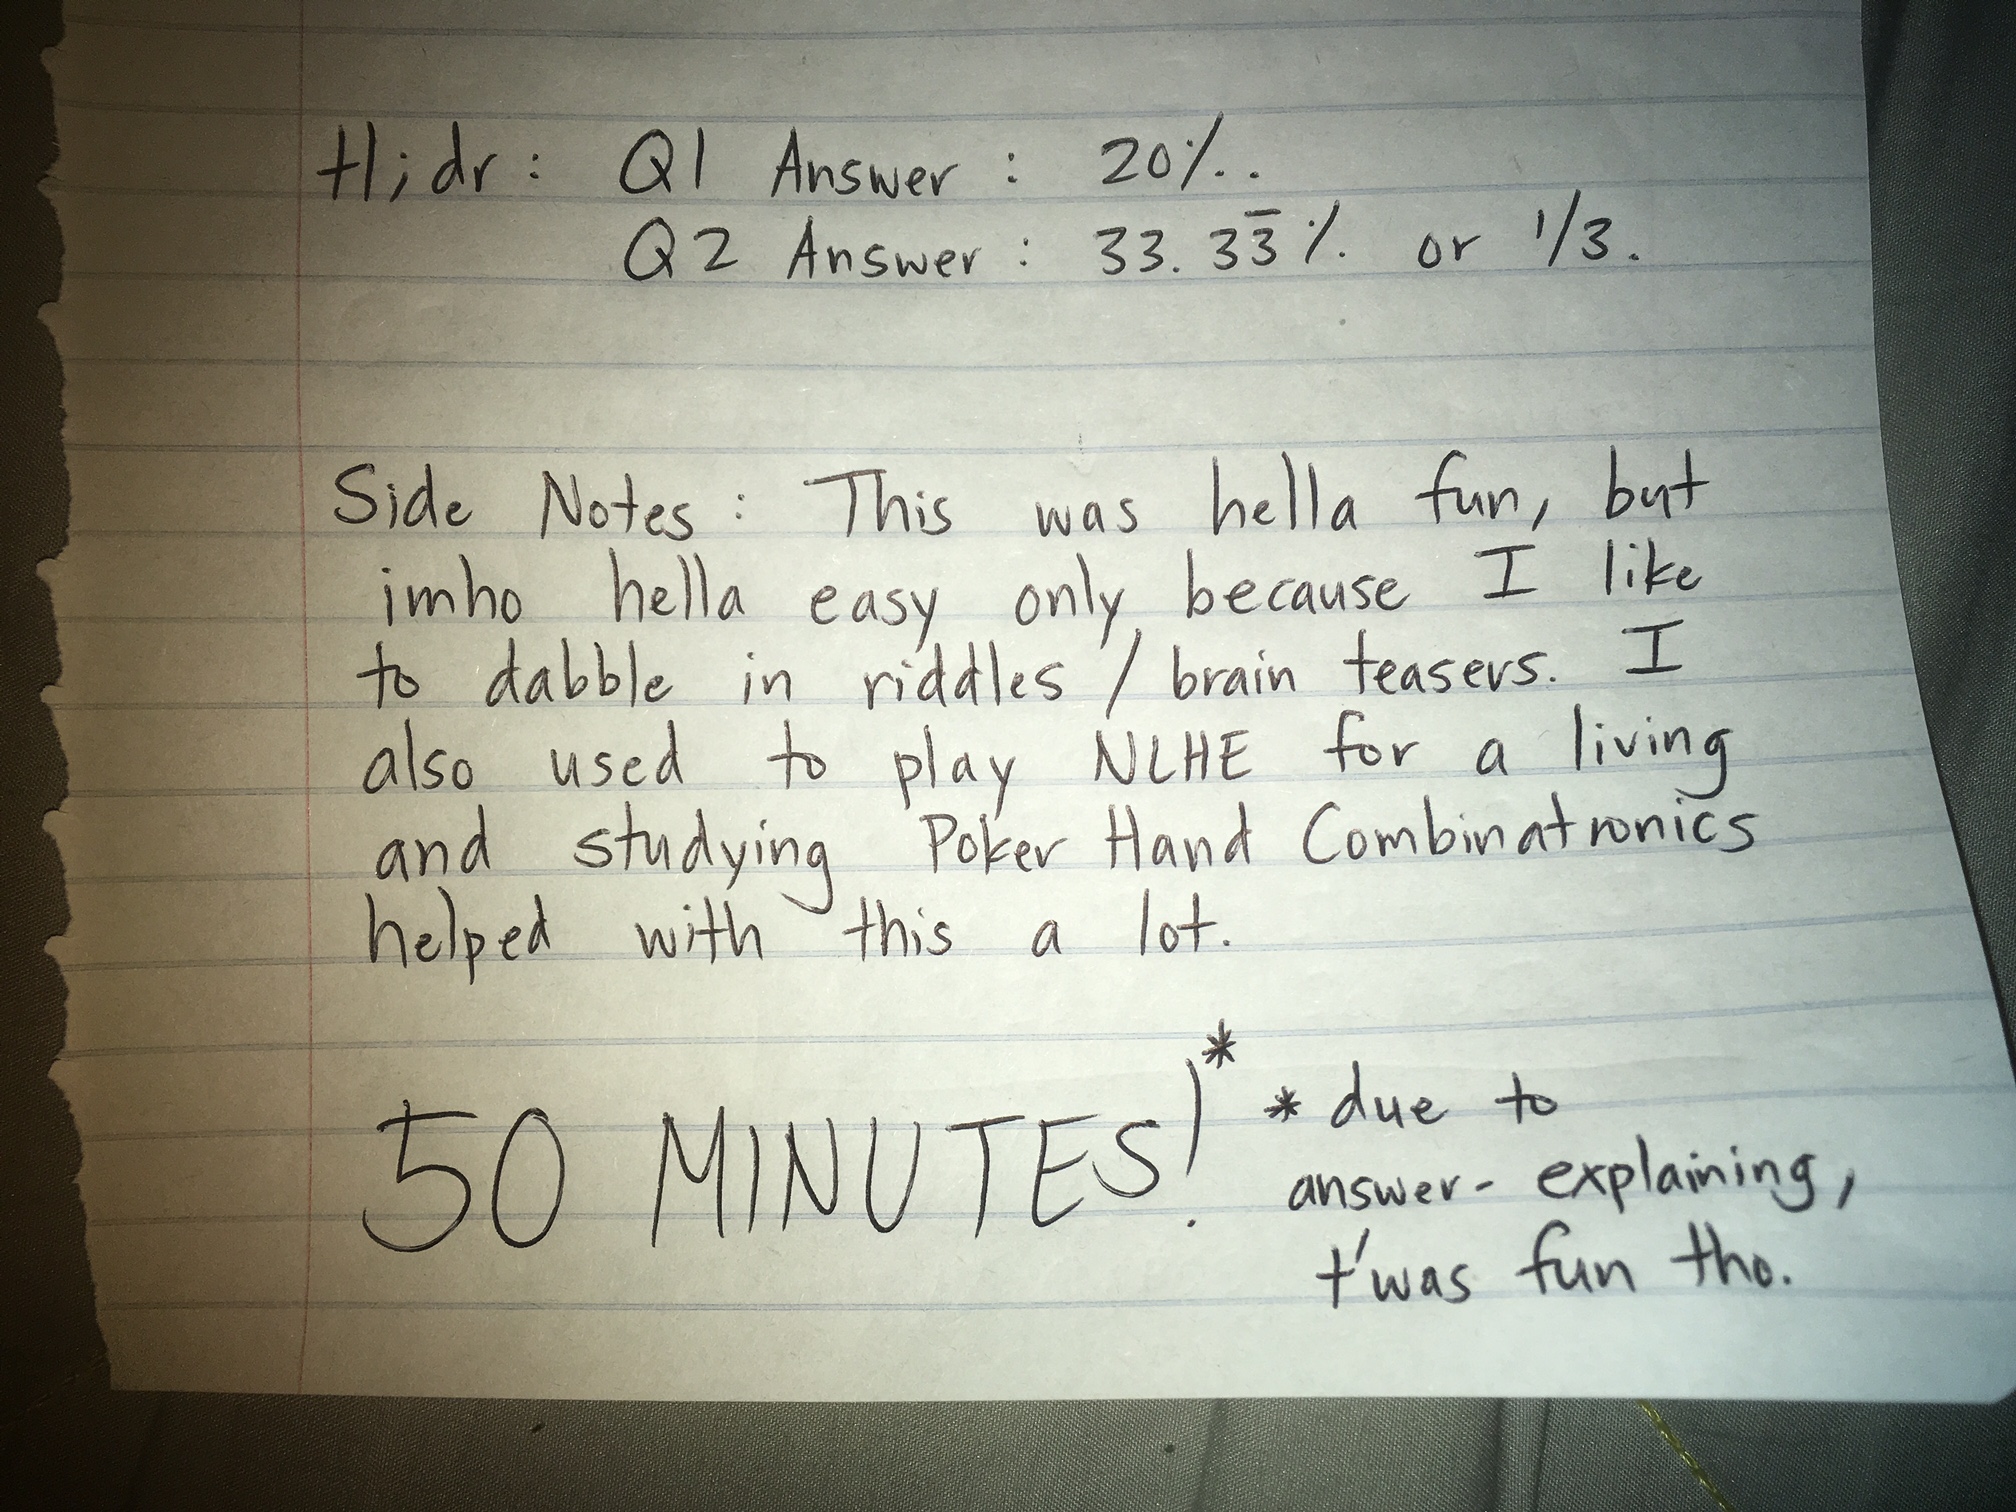 tl;dr: Q1 Answer: 20%.
Q2 Answer: 33.33̅% or 1/3.
Side Notes: This was hella fun, but
imho hella easy only because I like
to dabble in riddles / brain teasers. I
also used to play NLHE for a living
and studying Poker Hand Combinatronics
helped with this a lot.
50 MINUTES!*
* due to
answer-explaining,
t'was fun tho.